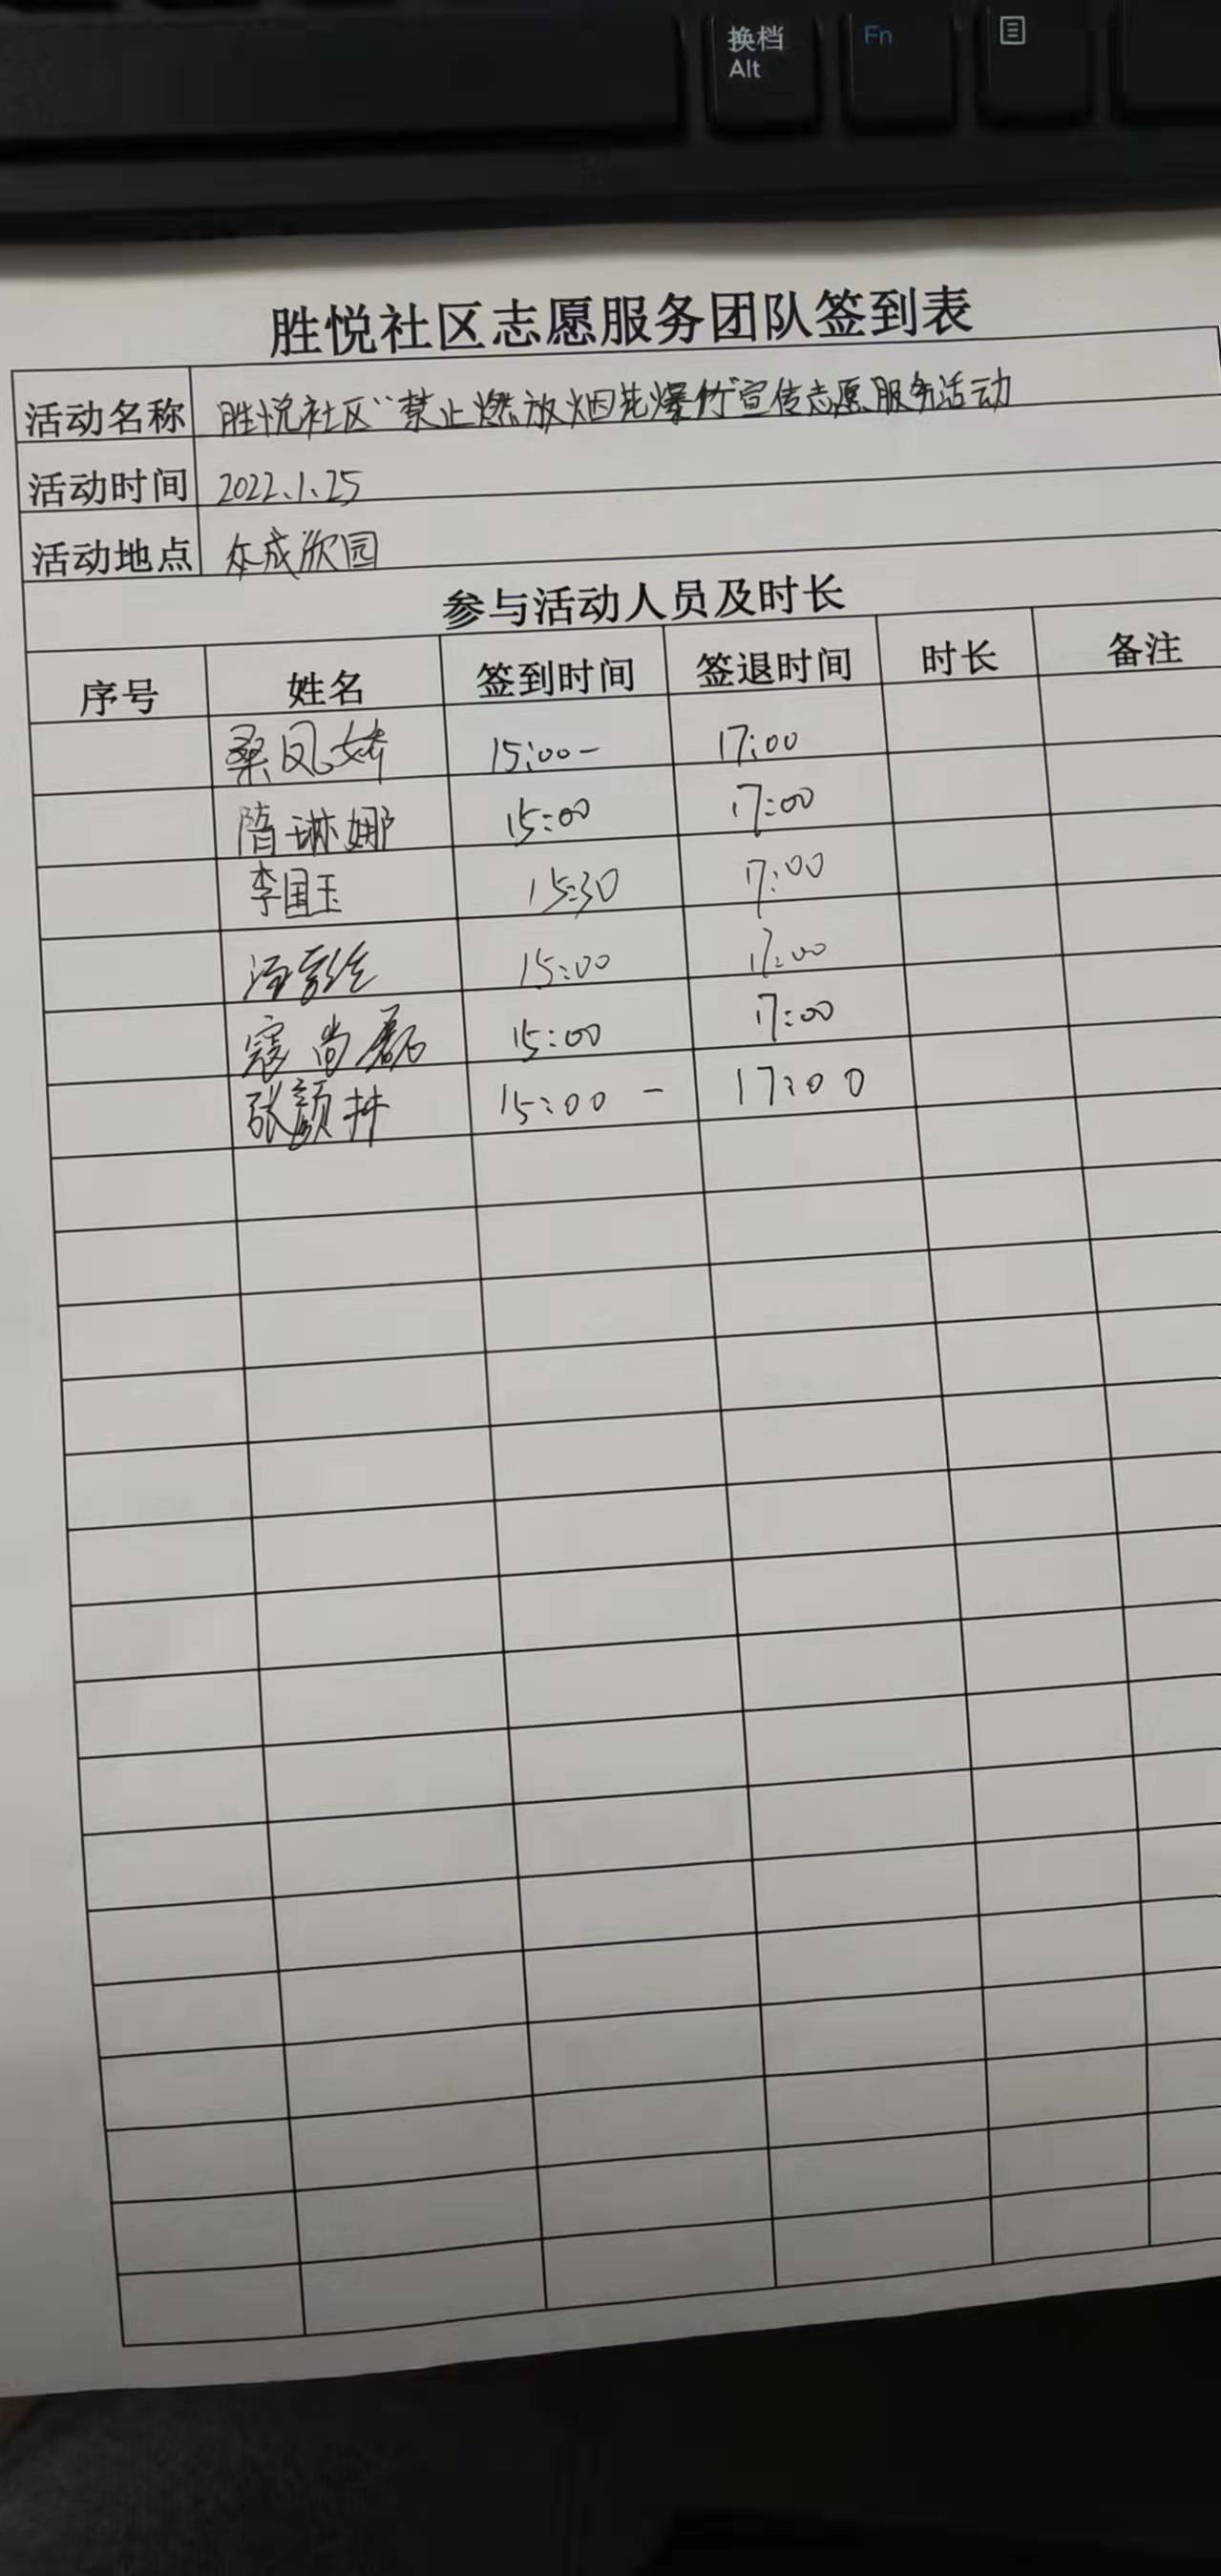 换档 Fn
Alt
胜悦社区志愿服务团队签到表
活动名称 胜悦社区“禁止燃放烟花爆竹”宣传志愿服务活动
活动时间 2022.1.25
活动地点 众成欣园
参与活动人员及时长
序号 姓名 签到时间 签退时间 时长 备注
桑凤娇 15:00- 17:00
隋琳娜 15:00 17:00
李国玉 15:30 17:00
15:00 17:00
寇尚磊 15:00 17:00
张颜 15:00 - 17:00